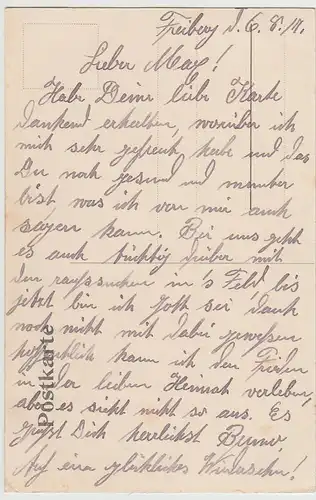 Freiberg d. 6. 8. /11.
Lieber Max!
Habe Deine liebe Karte
dankend erhalten, worüber ich
mich sehr gefreut habe und das
Du noch gesund und munter
bist, was ich von mir auch
sagen kann. Bei uns geht
es auch tüchtig drüber mit
den rausrücken in's Feld bis
jetzt bin ich Gott sei dank
noch nicht mit dabei gewesen
hoffentlich kann ich den Frieden
in der lieben Heimat verleben,
aber es sieht nicht so aus. Es
grüßt Dich herzlichst
Auf ein glückliches Wiedersehn!
Postkarte